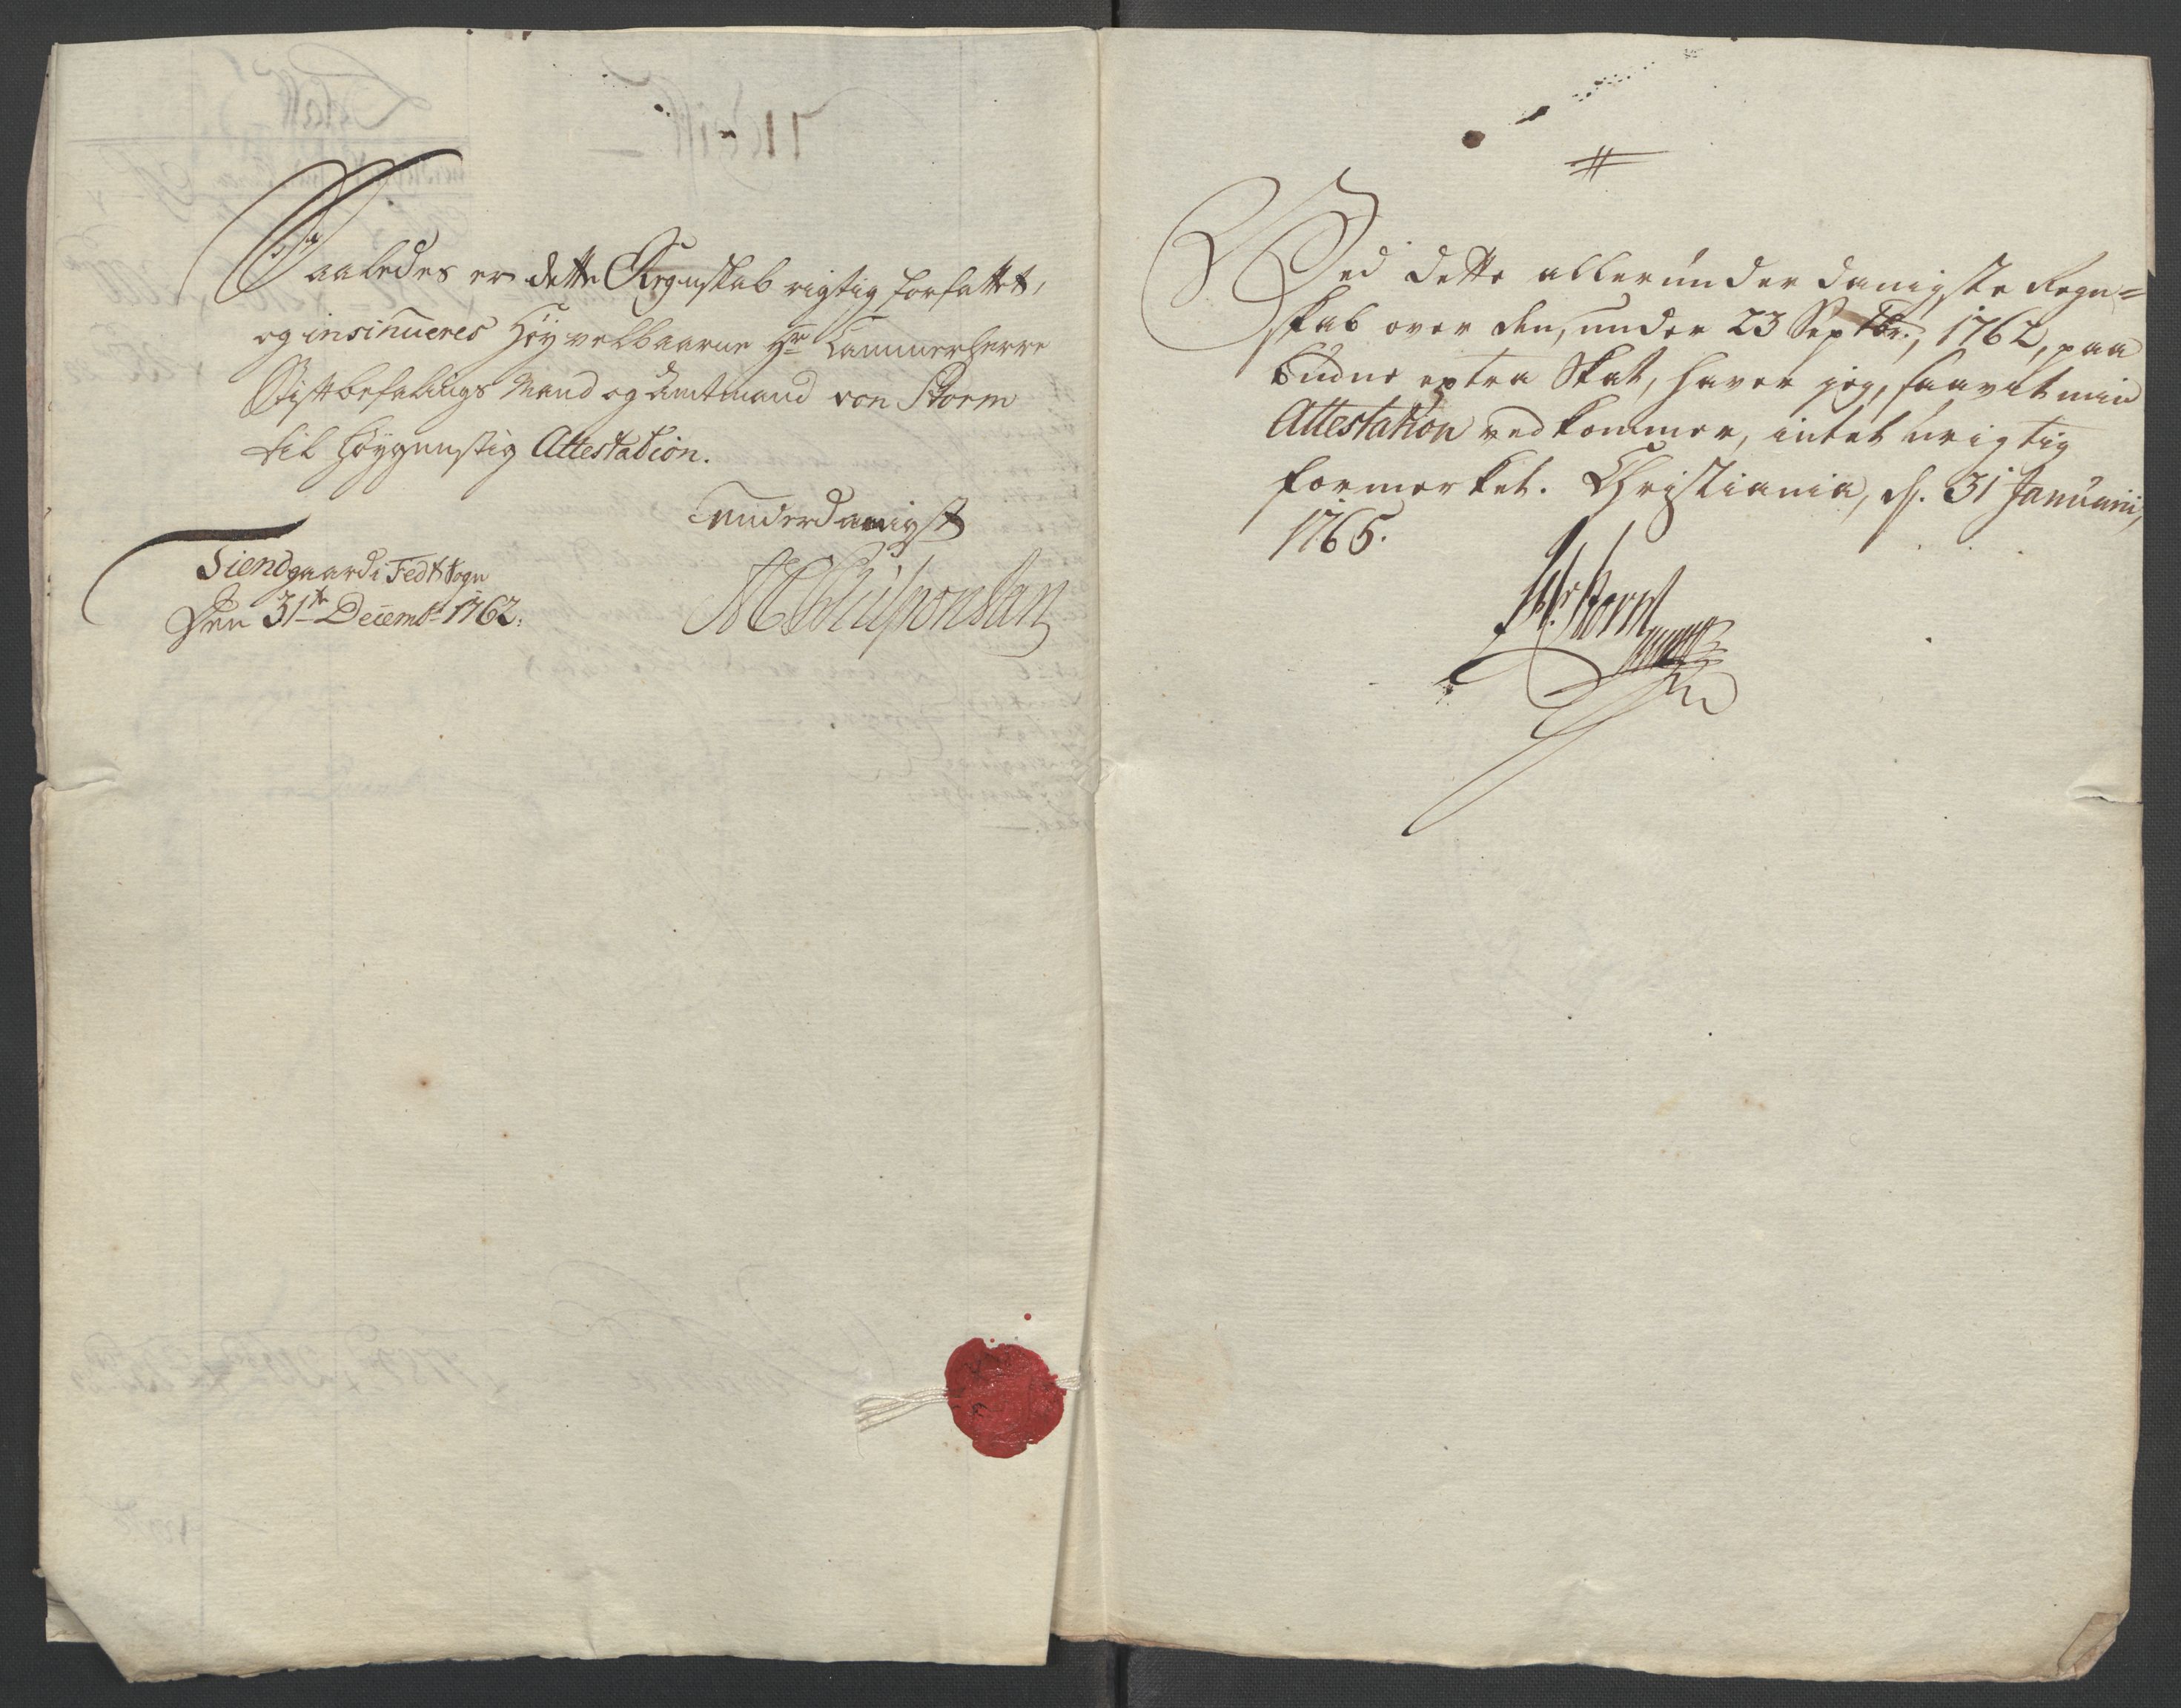 Saaledes er dette Regnskab rigtig forfattet,
og insinueres Høyvelbaarne Hr Cammerherre
Stiftbefalings Mand og Amtmand von Storm
til Høygunstig Attestation.
underdanigst
Tiendgaard i Fedt Sogn
Den 31te Decembr 1762.
#
Ved dette allerunderdanigste Regn=
skab over den, under 23 Septbr, 1762, paa
budne extra Skat, haver jeg, saavit min
Attestation vedkommer, intet urigtig
formerket. Christiania, d. 31 Januarii,
1765.
Storm